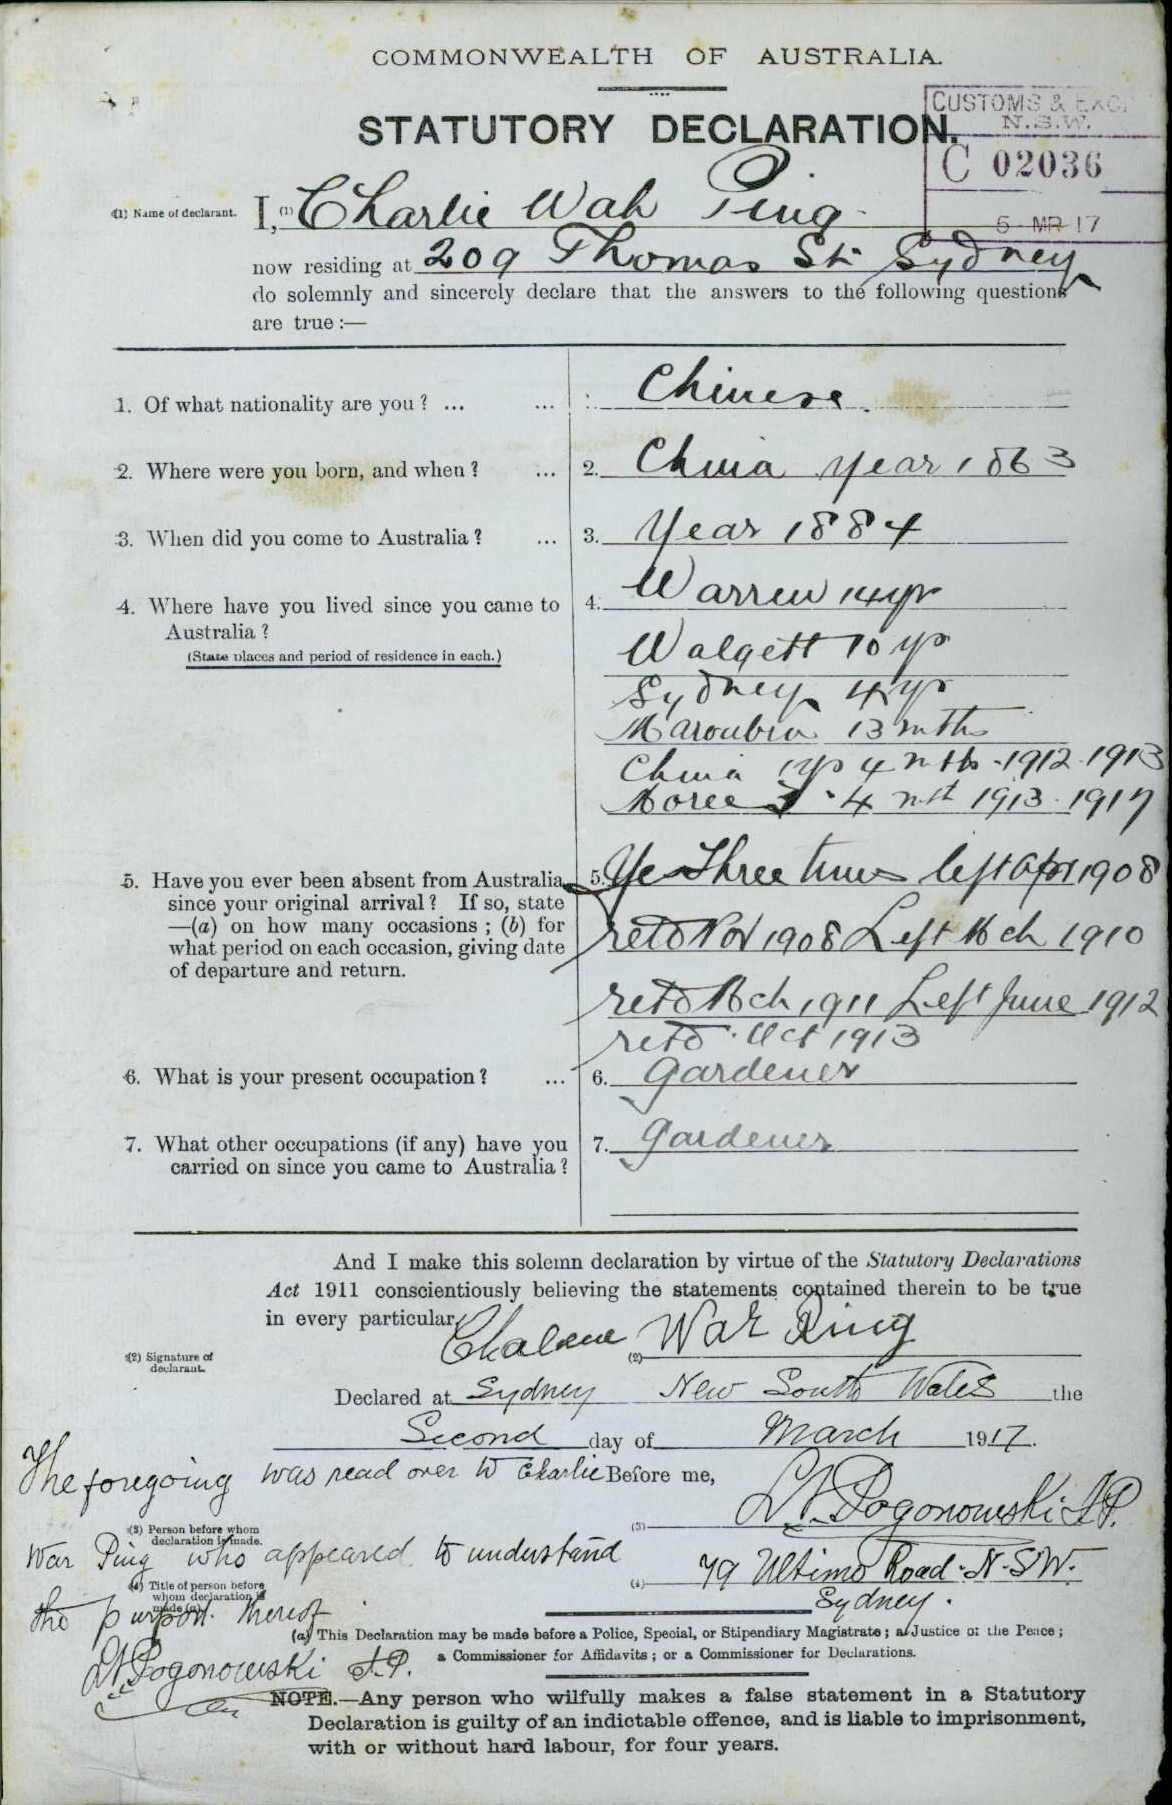 COMMONWEALTH OF AUSTRALIA.
STATUTORY DECLARATION.
CUSTOMS & EXC
N.S.W.
C 02036
5 MR 17
(1) Name of declarant.
I, (1) Charlie Wah Ping
now residing at 209 Thomas St. Sydney
do solemnly and sincerely declare that the answers to the following questions
are true :—
1. Of what nationality are you ? ... ... Chinese.
2. Where were you born, and when ? ... 2. China year 1863
3. When did you come to Australia ? ... 3. Year 1884
4. Where have you lived since you came to 4. Warren 14 yr
Australia ?
(State places and period of residence in each.)
Walgett 10 yr
Sydney 4 yr
Maroubra 13 mths
China 1 yr 4 mths - 1912 - 1913
Moree 3 · 4 mth 1913 - 1917
5. Have you ever been absent from Australia 5. Yes Three times left Apr 1908
since your original arrival ? If so, state
—(a) on how many occasions ; (b) for
what period on each occasion, giving date
of departure and return.
retd Nov 1908 Left Mch 1910
retd Mch 1911 Left June 1912
retd Oct 1913
6. What is your present occupation ? ... 6. Gardener
7. What other occupations (if any) have you 7. Gardener
carried on since you came to Australia ?
And I make this solemn declaration by virtue of the Statutory Declarations
Act 1911 conscientiously believing the statements contained therein to be true
in every particular.
(2) Signature of
declarant.
(2) War Ping
Declared at Sydney New South Wales the
Second day of March 1917.
The foregoing was read over to Charlie Before me,
(3) Person before whom
declaration is made.
(3) Pogonowski J.P.
War Ping who appeared to understand
(4) Title of person before
whom declaration is
made (a).
(4) 79 Ultimo Road. N.S.W.
Sydney.
the purport thereof
(a) This Declaration may be made before a Police, Special, or Stipendiary Magistrate ; a Justice of the Peace ;
a Commissioner for Affidavits ; or a Commissioner for Declarations.
Pogonowski J.P.
NOTE.—Any person who wilfully makes a false statement in a Statutory
Declaration is guilty of an indictable offence, and is liable to imprisonment,
with or without hard labour, for four years.